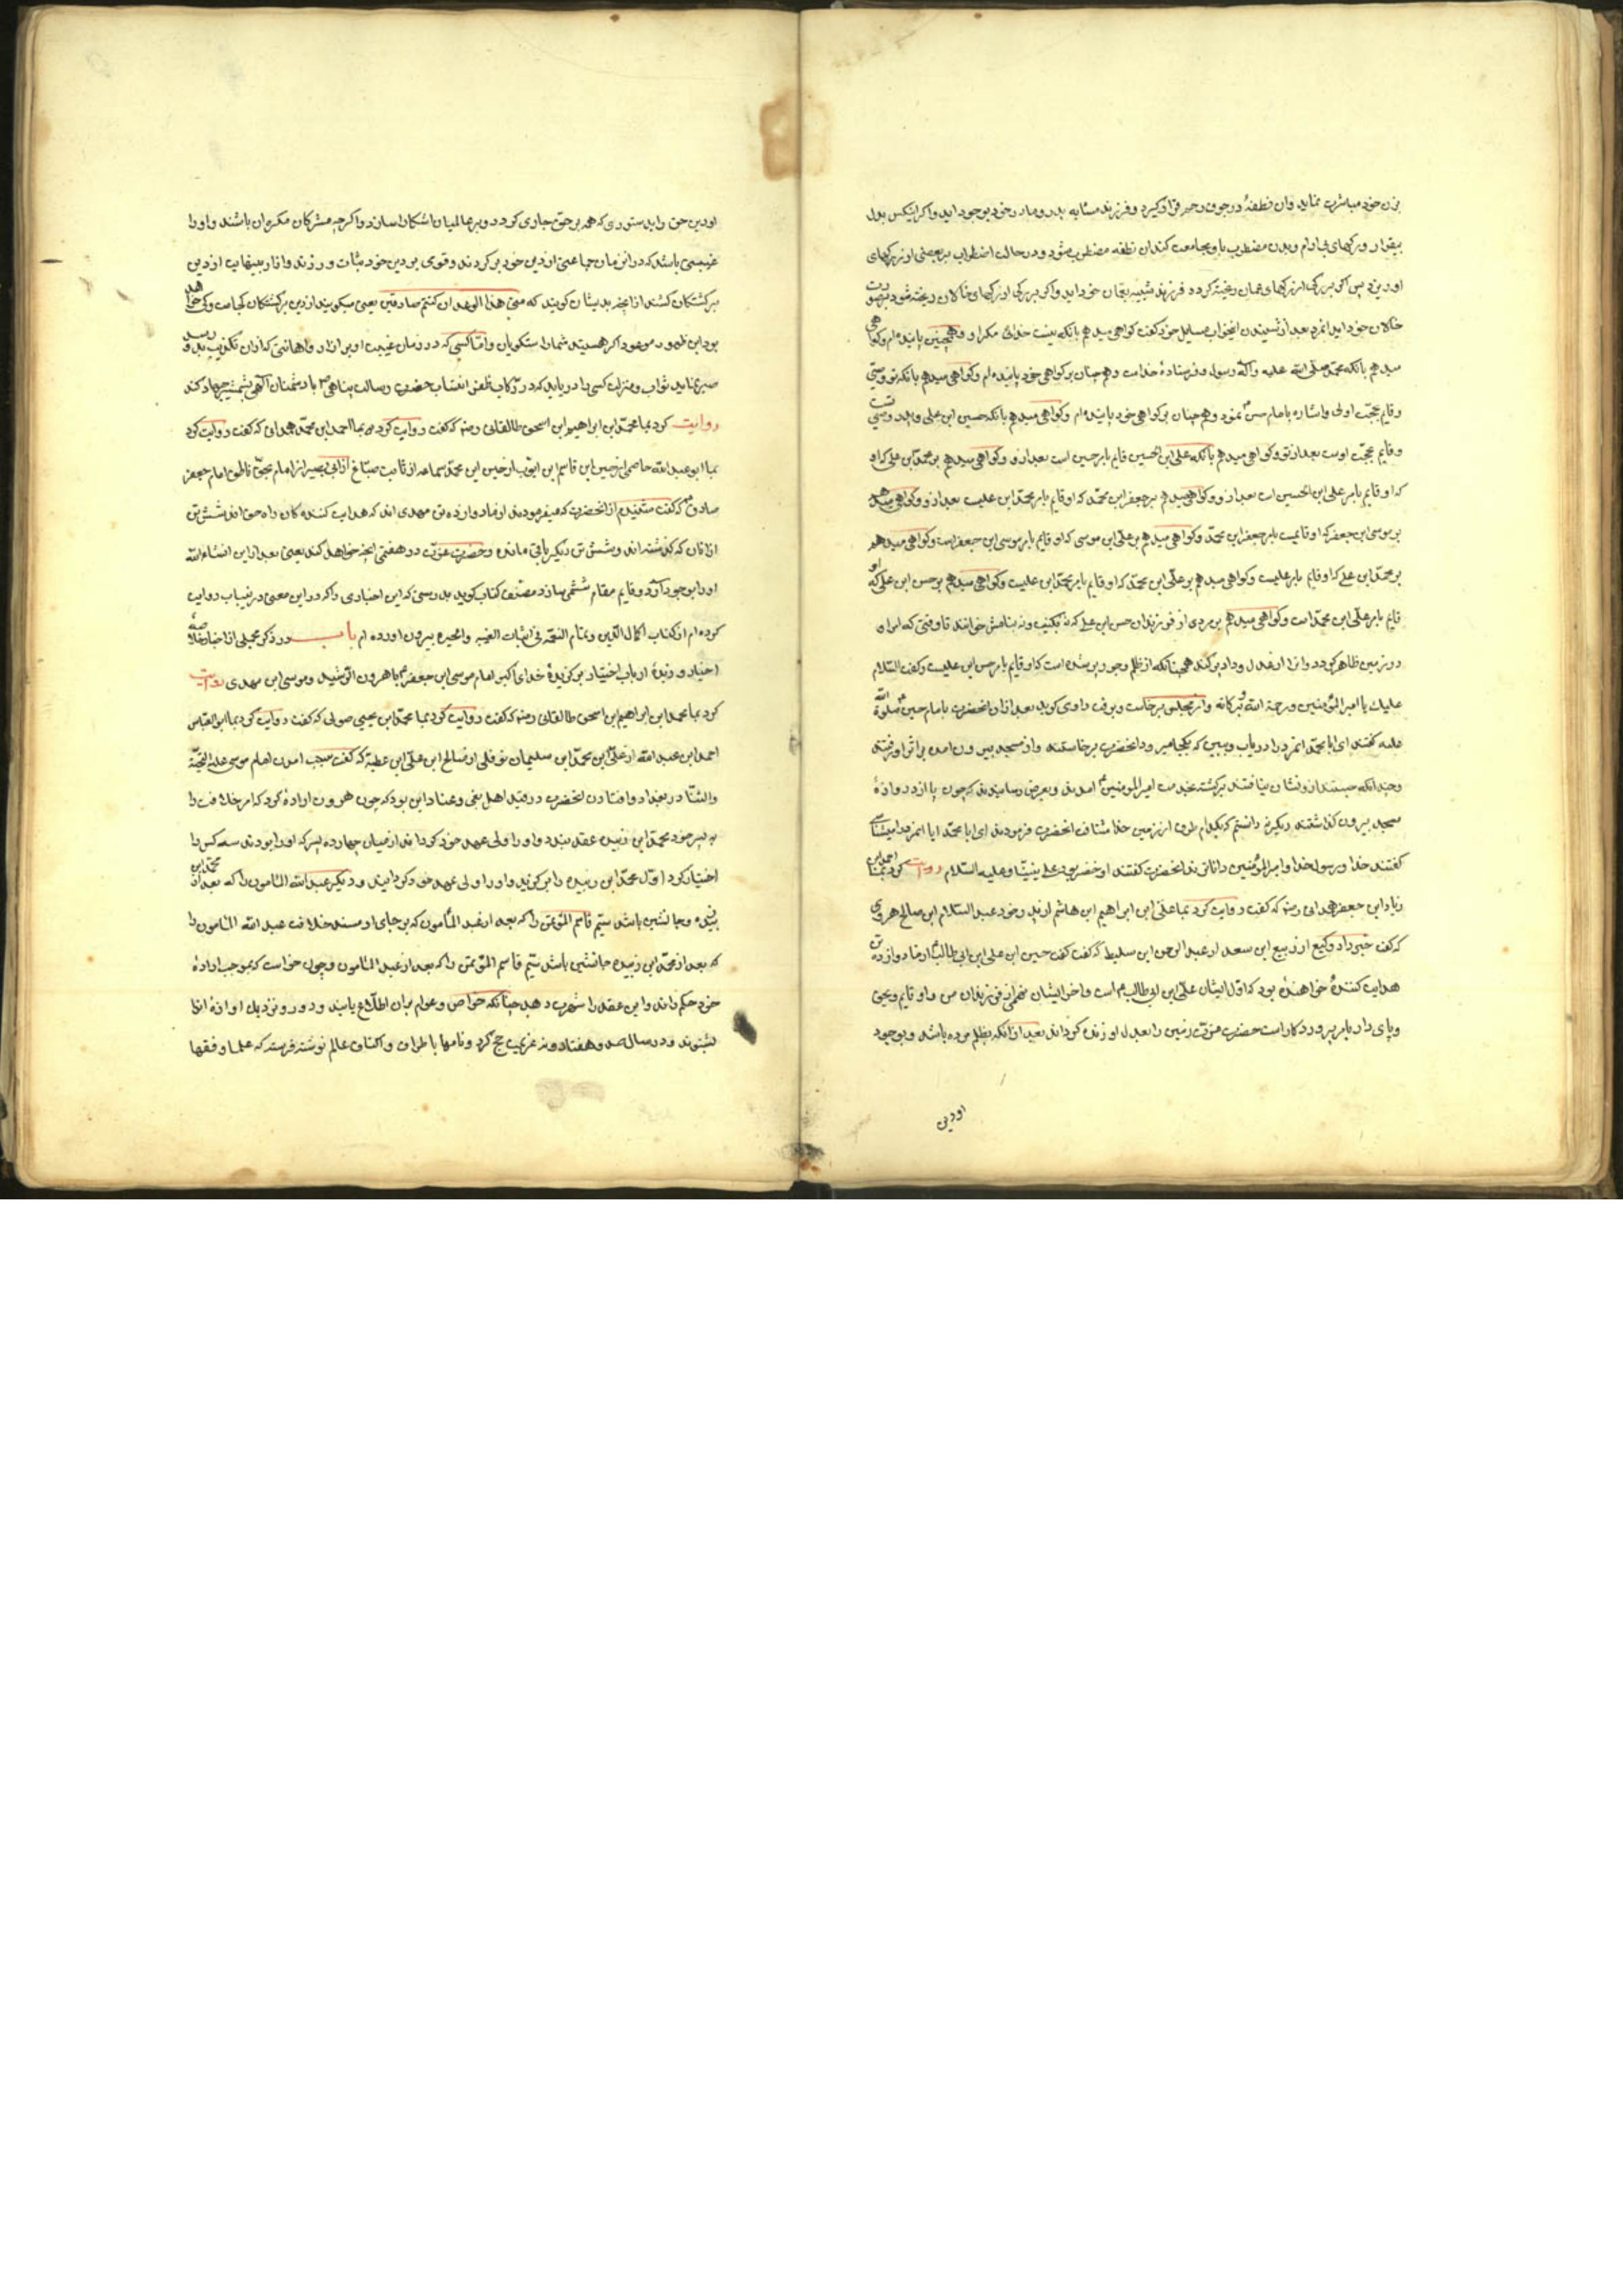 بزن خود مباشرت نماید وان نطفهٔ در جوف رحم قرار گیرد و فرزند مشابه پدر و مادر خود بوجود اید و اگر اینکس بدل
بیقرار و رکهای بی ارام و بدن مضطرب با و مجامعت کند ان نطفه مضطرب شود و در حالت اضطراب بر بعضی از رکهای
او ریزد پس اگر بر رکی از رکهای عمان ریخته کردد فرزند شبیه بعمان خود اید و اگر بر رکی از رکهای خالان ریخته شود بصورت
خالان خود اید انمرد بعد از شنیدن انجواب مسایل خود کفت کواهی میدهم بانکه نیست خدائی مکر او و همچنین پاینده ام و کواهی
میدهم بانکه محمد صلی الله علیه واله رسول و فرستادهٔ خداست و همچنان بر کواهی خود پاینده ام و کواهی میدهم بانکه تو وصی
و قایم بحجت اوئی و اشاره بامام حسن نمود و همچنان بر کواهی خود پاینده ام و کواهی میدهم بانکه حسین ابن علی وصی
و قایم بحجت اوست بعد از تو و کواهی میدهم بانکه علی ابن الحسین قایم بامر حسین است بعد ازو و کواهی میدهم بر محمد ابن علی که او
که او قایم بامر علی ابن الحسین است بعد ازو و کواهی میدهم بر جعفر ابن محمد که او قایم بامر محمد ابن علیست بعد ازو و کواهی میدهم
بر موسی ابن جعفر که او قایمست بامر جعفر ابن محمد و کواهی میدهم بر علی ابن موسی که او قایم بامر موسی ابن جعفر است و کواهی میدهم
بر محمد ابن علی که او قایم بامر علیست و کواهی میدهم بر علی ابن محمد که او قایم بامر محمد ابن علیست و کواهی میدهم بر حسن ابن علی که او
قایم بامر علی ابن محمد است و کواهی میدهم بر مردی از فرزندان حسن ابن علی که نه بکنیت و نه بنامش خوانند تا وقتی که امر او
در زمین ظاهر کردد و انرا از عدل و داد پر کند همچنانکه از ظلم و جور پر شده است که او قایم بامر حسن ابن علیست و کفت السلام
علیک یا امیر المؤمنین و رحمة الله و برکاته و از مجلس برخاست و برفت راوی کوید بعد ازان انحضرت بامام حسین صلوة الله
علیه کفتند ای ابا محمد انمرد را دریاب و ببین که بکجا میرود انحضرت برخاستند و از مسجد بیرون امده بر اثر او رفتند
و چندانکه جستند ازو نشان نیافتند برکشته بخدمت امیر المومنین امدند و بعرض رسانیدند که چون پا از دروازهٔ
مسجد بیرون کذاشتند دیکر ندانستم که بکدام طرف از زمین خدا شتافت انحضرت فرمودند ای ابا محمد ایا انمرد را میشناسی
کفتند خدا و رسول خدا و امیر المؤمنین داناترند انحضرت کفتند او خضر بود علی نبینا و علیه السلام روایت کرد بما احمد ابن
زیاد ابن جعفر همدانی رضه که کفت روایت کرد بما علی ابن ابراهیم ابن هاشم از پدر خود عبد السلام ابن صالح هروی
که کفت خبر داد وکیع از ربیع ابن سعد از عبد الرحمن ابن سلیط که کفت کفت حسین ابن علی ابن ابی طالب از ما دوازده تن
هدایت کنندهٔ خواهنده بود که اول ایشان علی ابن ابی طالب است و اخر ایشان نهمی از فرزندان من و او قایم بحق
و پای دار بامر پروردکار است حضرت عزت زمین را بعدل او زنده کرداند بعد ازانکه بظلم مرده باشد و بوجود
او دین
او دین حق را بدستوری که همه بر حق جاری کردد و بر عالمیان اشکارا سازد و اکرچه مشرکان مکره ان باشند و او را
غیبتی باشد که در ان زمان جماعتی از دین خود برکردند و قومی بر دین خود ثبات ورزند و ازار بینهایت از دین
برکشتکان کشند از انچه بدیشان کویند که متی هذا الوعد ان کنتم صادقین یعنی میکویند از دین برکشتکان کجاست و کی خواهد
بود این ظهور موعود اکر هستید شما راستکویان و اما کسی که در زمان غیبت او بر ازار و اهانتی که ازان تکذیب بدو رسد
صبر نماید ثواب و منزلت کسی را دریابد که در رکاب ظفر انتساب حضرت رسالت پناهی ص با دشمنان الهی بشمشیر جهاد کند
روایت کرد بما محمد ابن ابراهیم ابن اسحق طالقانی رضه که کفت روایت کرد بما احمد ابن محمد همدانی که کفت روایت کرد
بما ابو عبد الله عاصمی از حسین ابن قاسم ابن ایوب از حسن ابن محمد سماعه از ثابت صباغ از ابی بصیر از امام بحق ناطق امام جعفر
صادق که کفت شنیدم از انحضرت که میفرمودند از ما دوازده تن مهدی اند که هدایت کننده کان راه حق اند شش تن
ازانان که کذشته اند و شش تن دیکر باقی مانده و حضرت عزت در هفتمی انچه خواهد کند یعنی بعد ازاین انشاء الله
او را بوجود آورد و قایم مقام ششمی سازد مصنف کتاب کوید بدرستی که این اخباری را که در این معنی در غیبات روایت
کرده ام از کتاب اکمال الدین و بتمام النعمه فی اثبات الغیبه و الحیره بیرون اورده ام باب در ذکر مجملی از اخبار خلاصهٔ
اخیار و زبدهٔ ارباب اختیار برکزیدهٔ خدای اکبر امام موسی ابن جعفر با هرون الرشید و موسی ابن مهدی روایت
کرد بما محمد ابن ابراهیم ابن اسحق طالقانی رضه که کفت روایت کرد بما محمد ابن یحیی صولی که کفت روایت کرد بما ابو العباس
احمد ابن عبد الله از علی ابن محمد ابن سلیمان نوفلی از صالح ابن علی ابن عطیه که کفت سبب امدن امام موسی علیه التحیة
و الثنا در بغداد و افتادن انحضرت در قید اهل بغی و عناد این بود که چون هرون ارادهٔ کرد که امر خلافت را
به پسر خود محمد ابن زبیده عقد بندد و او را ولی عهد خود کرداند از میان چهارده پسر که او را بودند سه کس را
اختیار کرد اول محمد ابن زبیده را برکزید و او را ولی عهد خود کردانید و دیکر عبد الله المامون را که بعد از محمد ابن
زبیده جانشین باشد سیم قاسم المؤتمن را که بعد از عبد المأمون که بر جای او مسند خلافت عبد الله المامون را
که بعد از محمد ابن زبیده جانشین باشد سیم قاسم المؤتمن را که بعد از عبد المامون و چون خواست که بموجب ارادهٔ
خود حکم راند و این عقد را شهرت دهد چنانکه خواص و عوام بران اطلاع یابند و دور و نزدیک اوازهٔ انرا
بشنوند و در سال صد و هفتاد و نه عزیمت حج کرد و نامها باطراف و اکناف عالم نوشته فرستد که علما و فقها